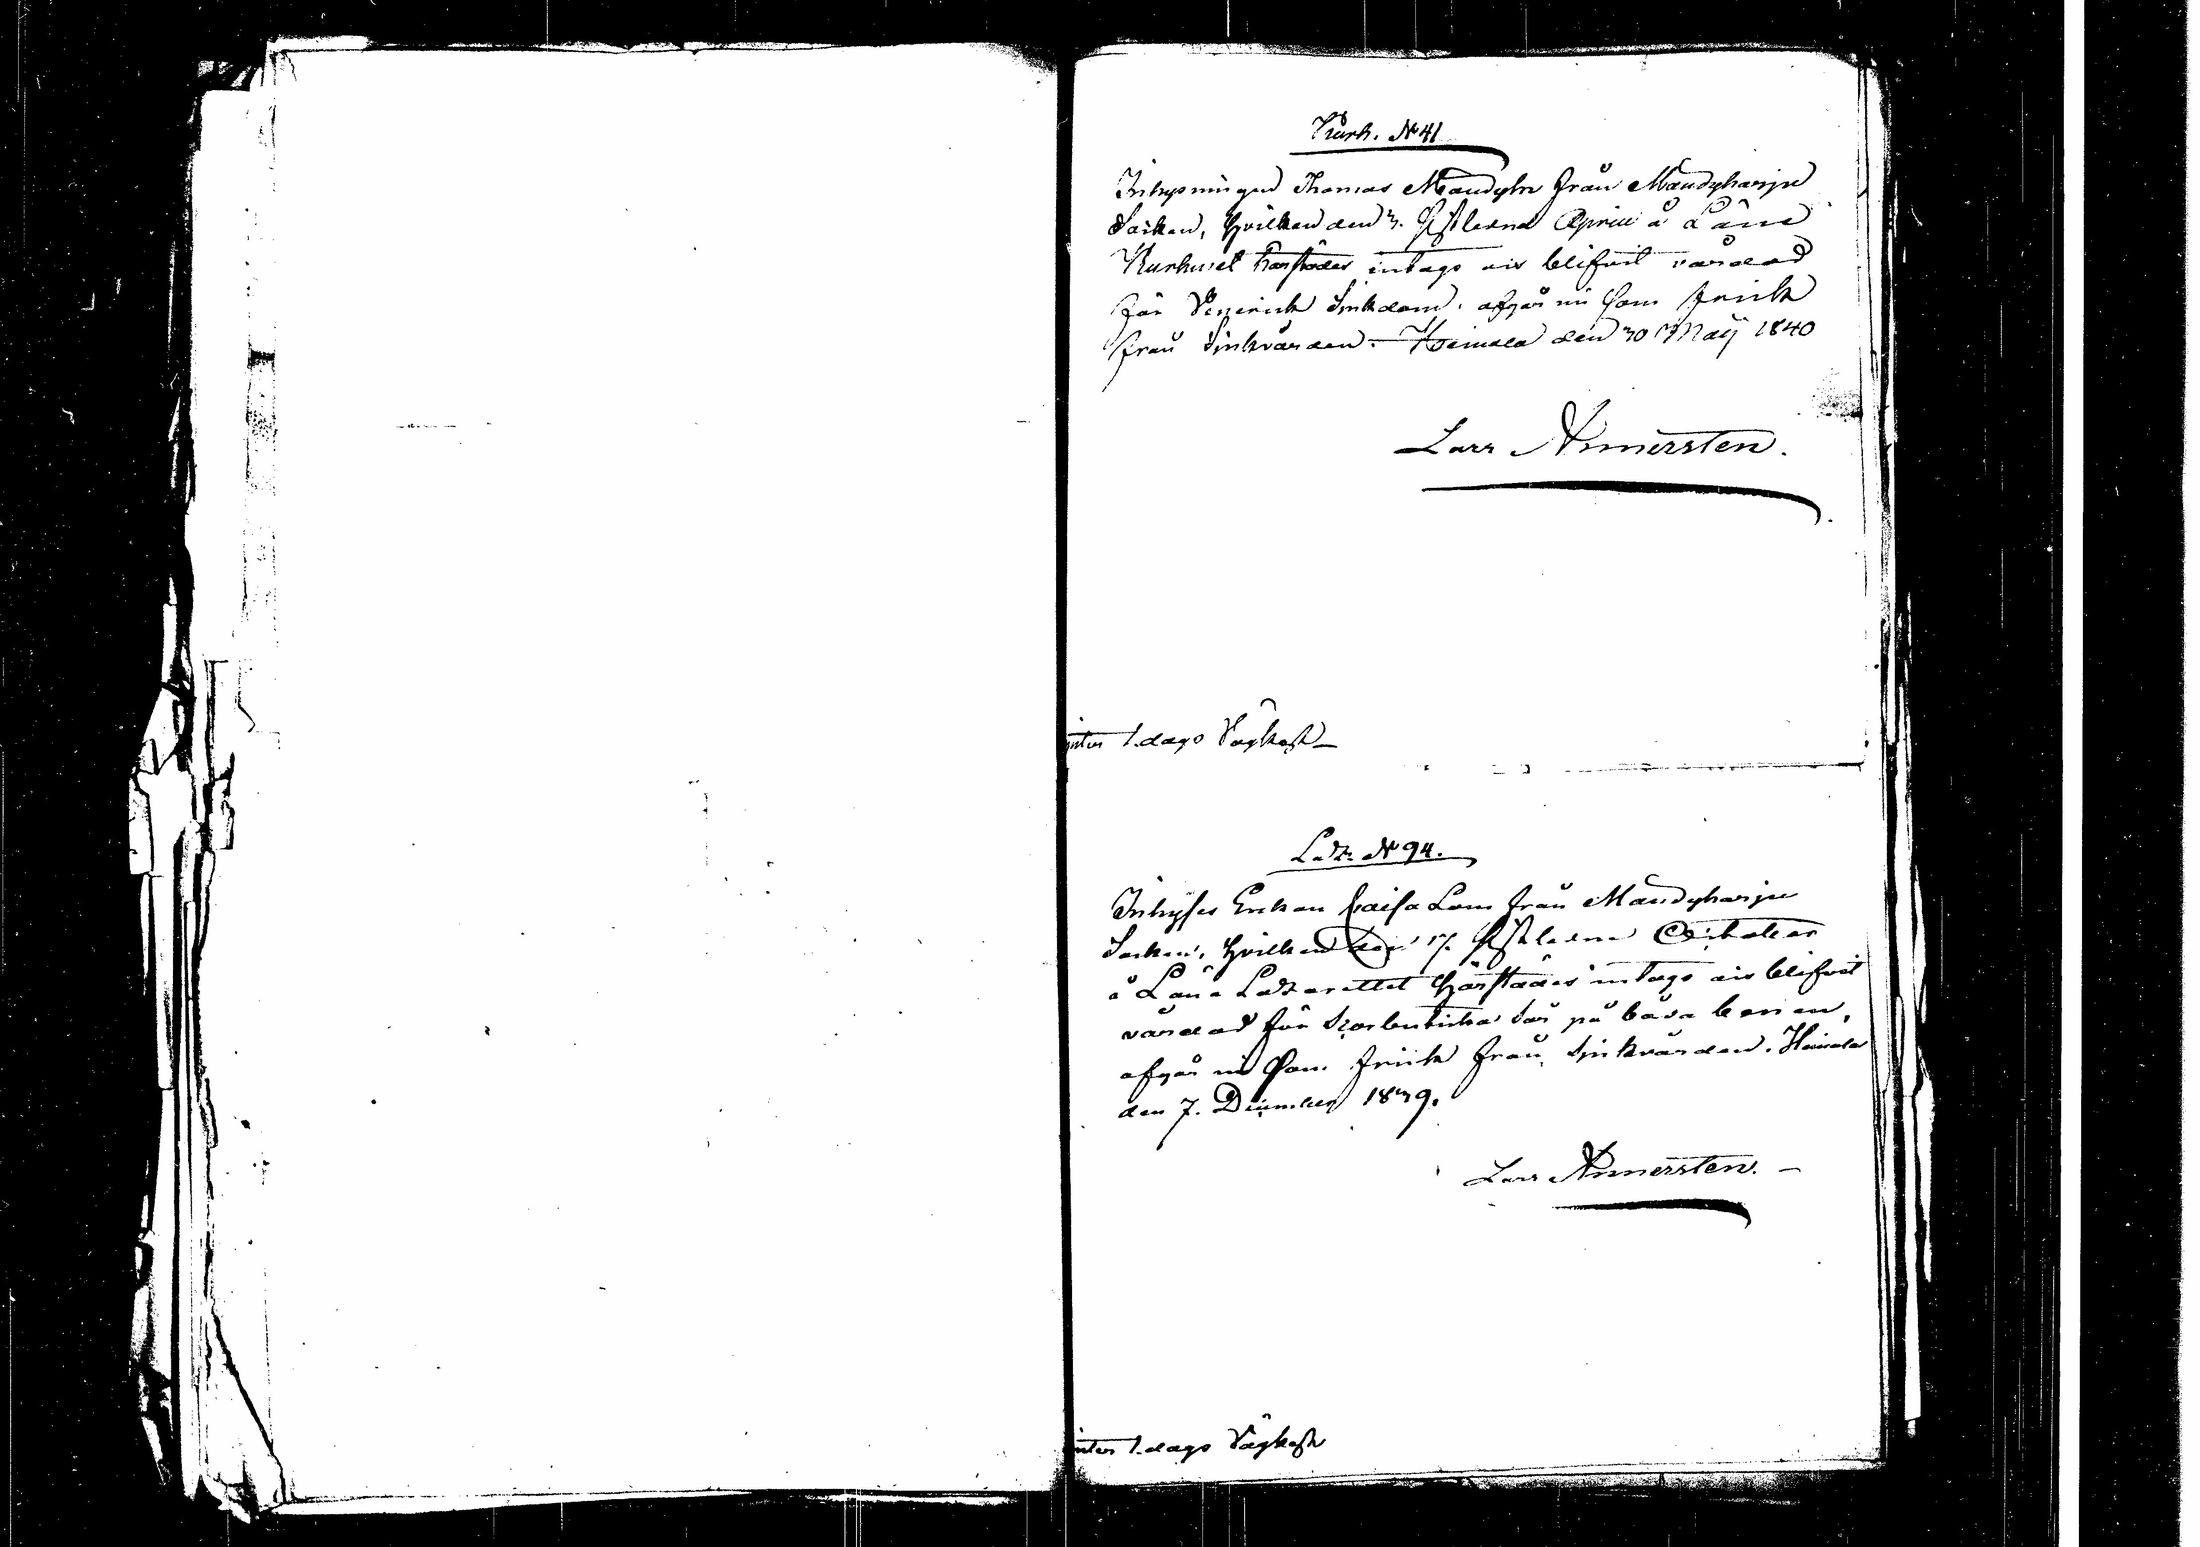 Kurh. N 41
Inhysningen Thomas Mandyhn från Mandyharju
Socken, hvilken den 3. sistledne April å Läns
Kurhuset härstädes intags ock blifvit vårdad
för Venerisk Sjukdom, afgår nu som frisk
från Sjukvården. Heinola den 30 Maij 1840
Lars Armersten.
1. dags Vägkost
Latz. N 94.
Inhyses Enkan Caisa Lom från Mandyharju
Socken, hvilken den 17. sistledne October
å Läns Latzarettet härstädes intags ock blifvit
vårdad för Scorbutiska sår på båda benen,
afgår nu som frisk från Sjukvården. Heinola
den 7. December 1839.
Lars Armersten.
1. dags Vägkost